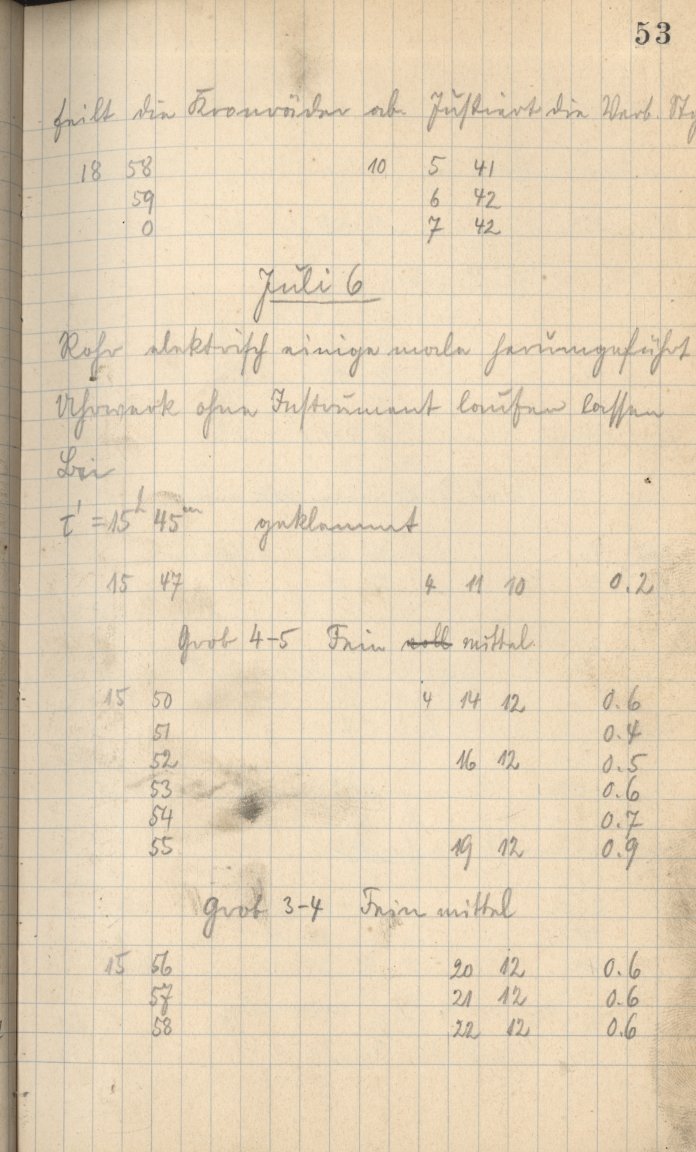 53
feilt die Kronräder ab. Justiert die Verb.
18 58 10 5 41
59 6 42
0 7 42
Juli 6
Rohr elektrisch einige male herumgeführt
Uhrwerk ohne Instrument laufen lassen
Bei
τ' = 15h 45m geklemmt
15 47 4 11 10 0.2
Grob 4-5 Fein voll mittel.
15 50 4 14 12 0.6
51 0.4
52 16 12 0.5
53 0.6
54 0.7
55 19 12 0.9
Grob 3-4 Fein mittel
15 56 20 12 0.6
57 21 12 0.6
58 22 12 0.6